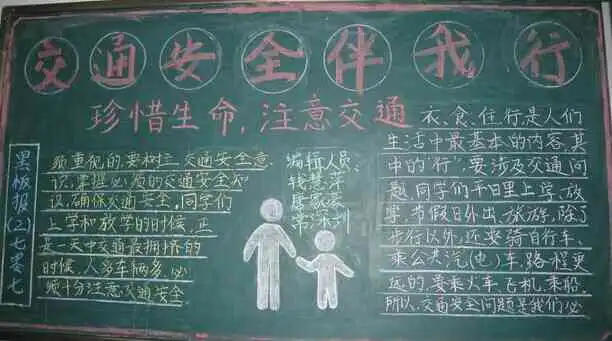 交通安全伴我行
珍惜生命,注意交通
衣、食、住、行,是人们
生活中最基本的内容,其
中的"行",要涉及交通问
题,同学们平日里上学、放
学,节假日外出、旅游,除了
步行以外,还要骑自行车、
乘公共汽(电)车,路程更
远的,要乘火车、飞机、乘船,
所以,交通安全问题是我们必
须重视的,要树立交通安全意
识,掌握必须的交通安全知
识,确保交通安全。同学们
上学和放学的时候,正
是一天中交通最拥挤的
时候,人多车辆多,必
须十分注意交通安全
编辑人员:
黑板报(三)七零七